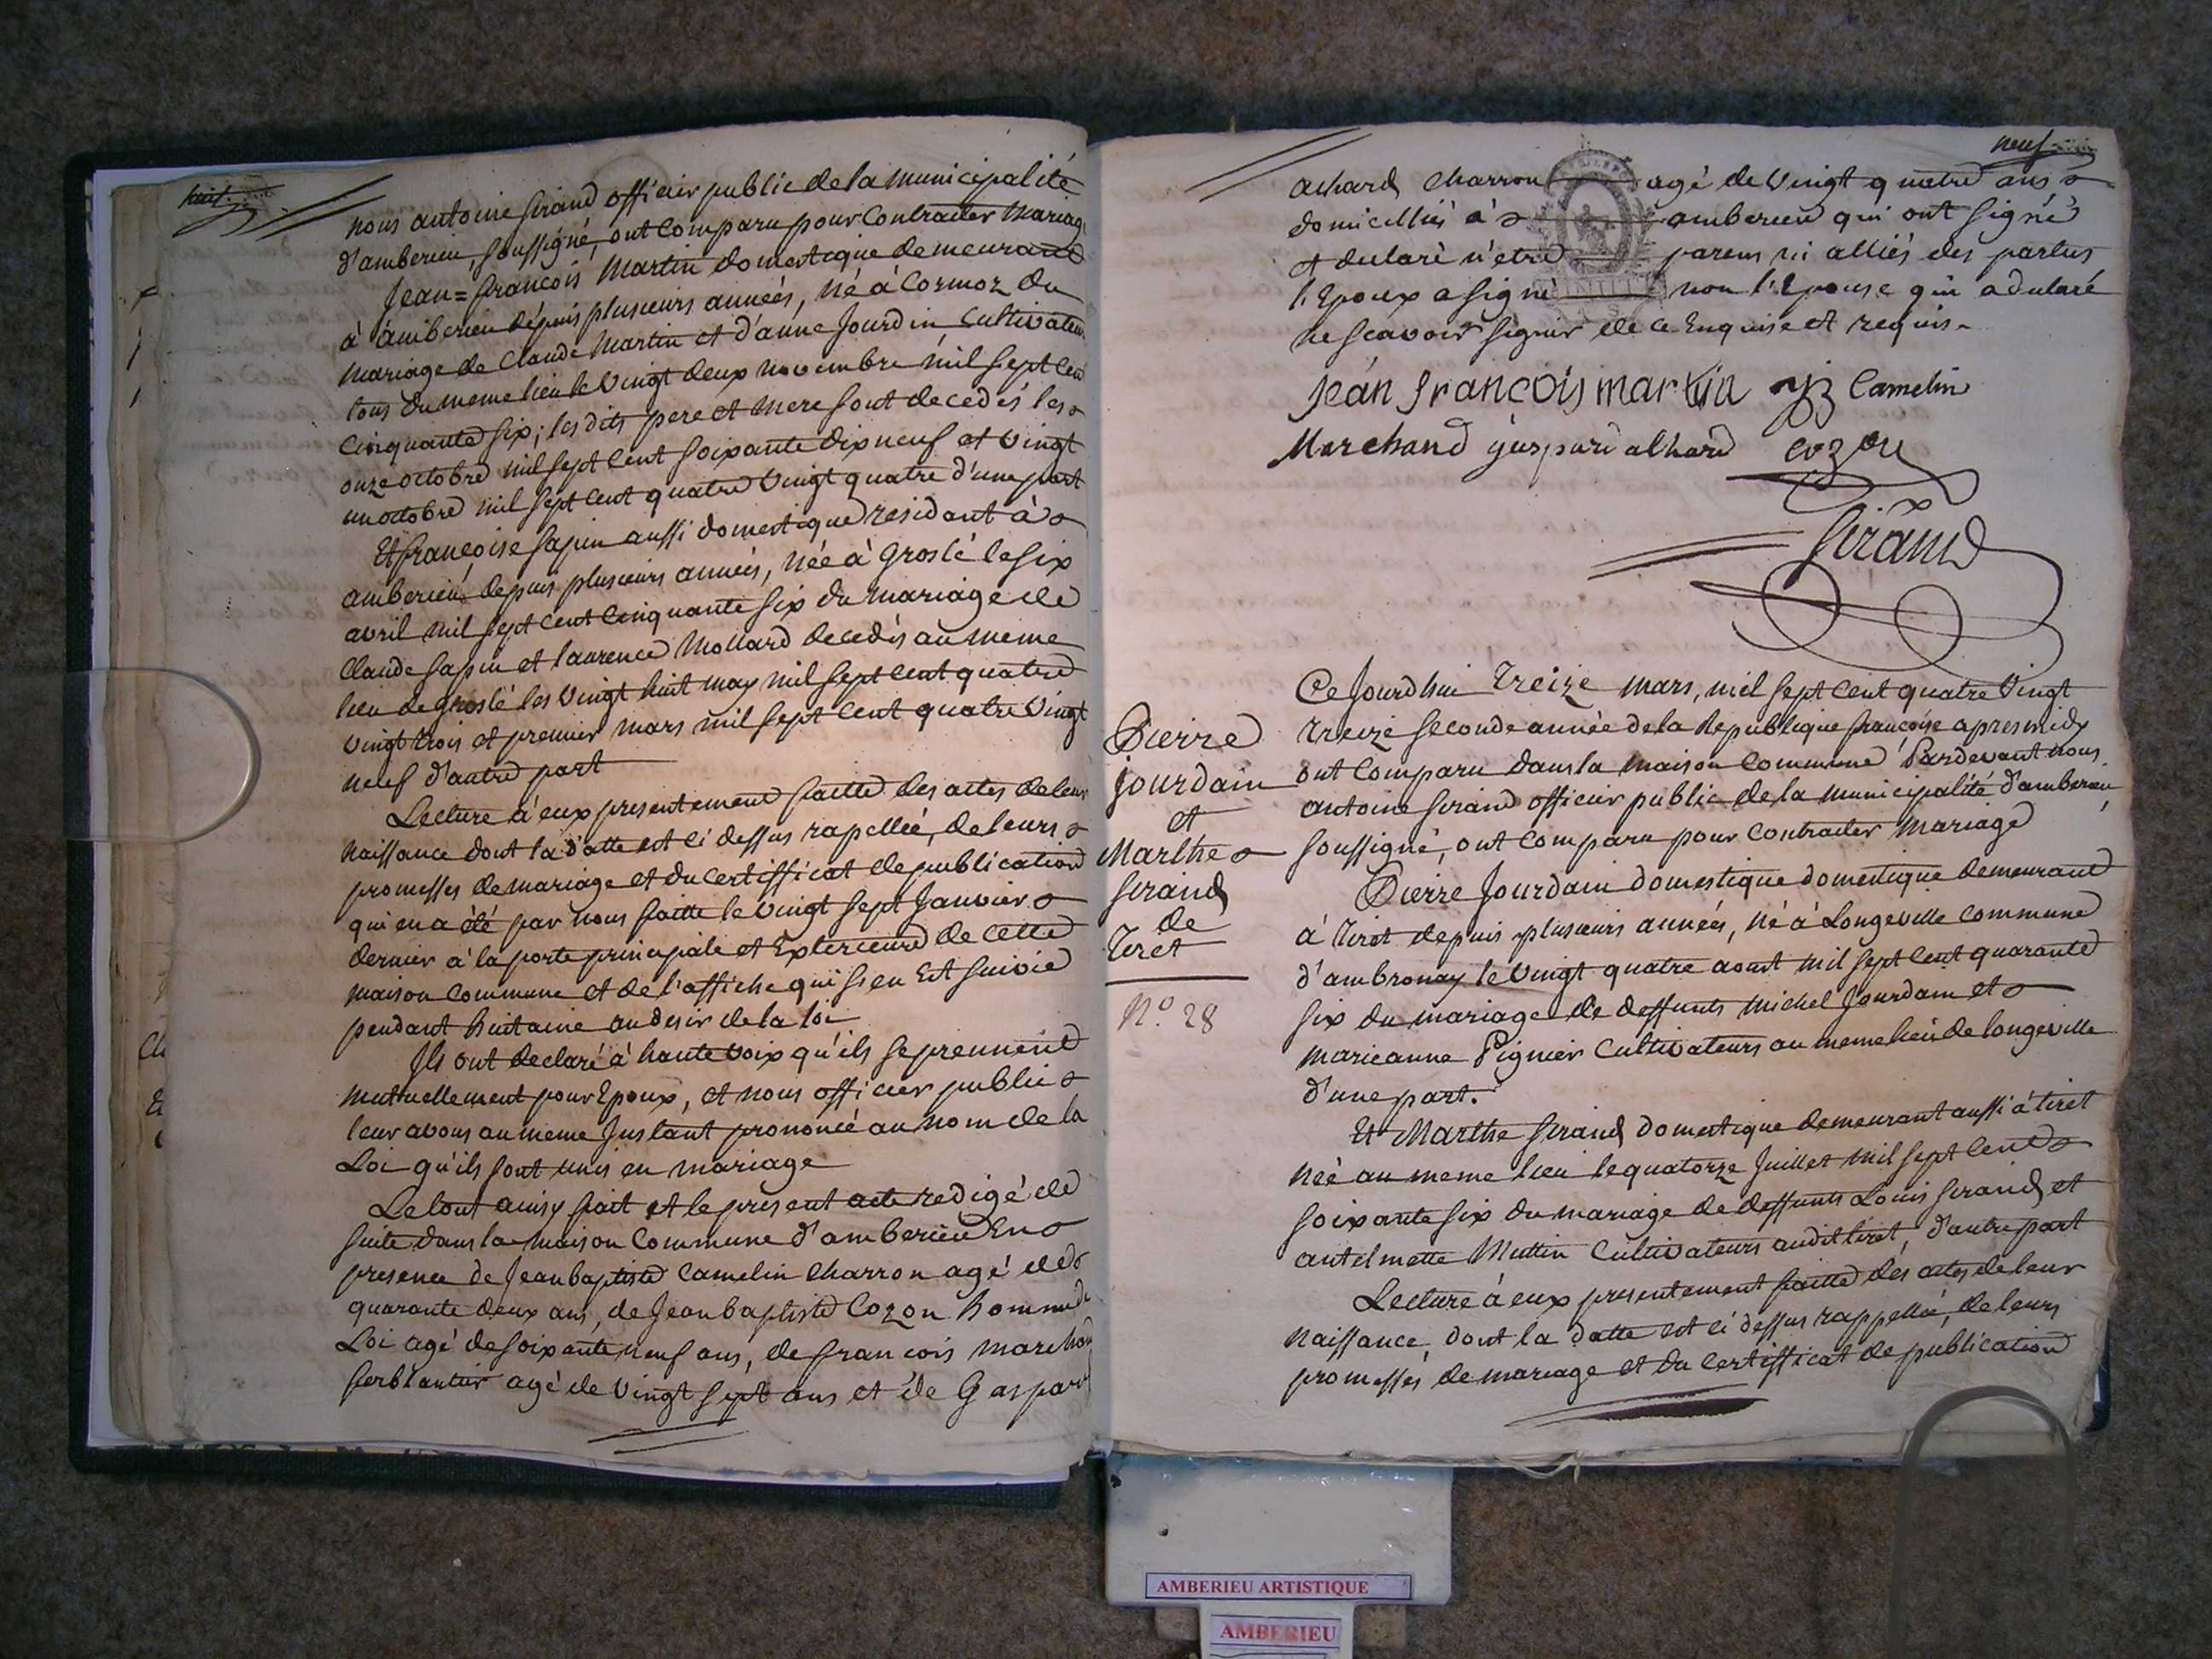 huit
nous antoine Sirand officier public de la municipalité
d'amberieu, soussigné, ont comparu pour contracter mariage
Jean=françois Martin domestique demeurand
à amberieu depuis plusieurs années, né à Cormoz du
mariage de Claude Martin et d'anne Jourdin cultivateurs
tous du meme lieu le vingt deux novembre mil sept cent
cinquante six; les dits pere et mere sont decedés les
onze octobre mil sept cent soixante dix neuf et vingt
un octobre mil sept cent quatre vingt quatre d'une part
Et françoise Sapin aussi domestique residant à
amberieu depuis plusieurs années, née à Groslé le six
avril mil sept cent cinquante six du mariage de
Claude Sapin et laurence Mollard decedés au meme
lieu de Groslé les vingt huit may mil sept cent quatre
vingt trois et premier mars mil sept cent quatre vingt
neuf d'autre part
Lecture à eux presentement faitte des actes de leur
naissance dont la datte est ci dessus rapellée, de leurs
promesses de mariage et du certifficat de publication
qui en a été par nous faitte le vingt sept Janvier
dernier à la porte principale et Exterieure de cette
maison commune et de l'affiche qui s'en Est suivie
pendant huitaine au desir de la loi
Ils ont declaré à haute voix qu'ils se prennent
mutuellement pour Epoux, et nous officier public
leur avons au meme Instant prononcé au nom de la
Loi qu'ils sont unis en mariage
Le tout ainsy fait et le present acte redigé de
suite dans la maison commune d'amberieu En
presence de Jean baptiste Camelin Charron agé de
quarante deux ans, de Jean baptiste Cozon homme de
Loi agé de soixante neuf ans, de francois marchand
ferblantier agé de vingt sept ans et de Gaspard
neuf
achard charron agé de vingt quatre ans
domicilliés à amberieu qui ont signé
et declaré n'etre parens ni alliés des parties
l'Epoux a signé non l'Epouse qui a declaré
ne scavoir signer de ce Enquise et requise
Jean françois martin Camelin
Marchand gaspard alhard cozon
Sirand
Pierre
Jourdain
et
Marthe
Sirand
de
Tiret
N.° 28
Ce Jourdhui treize mars, mil sept cent quatre vingt
treize seconde année de la Republique françoise apres midy
ont comparu dans la maison commune Pardevant nous
antoine Sirand officier public de la municipalité d'amberieu,
soussigné, ont comparu pour contracter mariage
Pierre Jourdain domestique domestique demeurant
à tiret depuis plusieurs années, né à Longeville commune
d'ambronay le vingt quatre aout mil sept cent quarante
six du mariage de deffunts michel Jourdain et
marieanne Pignier cultivateurs au meme lieu de longeville
d'une part.
Et Marthe Sirand domestique demeurant aussi à tiret
née au meme lieu le quatorze Juillet mil sept cent
soixante six du mariage de deffunts Louis Sirand et
antelmette Muttin cultivateurs audit tiret, d'autre part
Lecture à eux presentement faitte dés actes de leur
naissance dont la datte est ci dessus rappellée, de leurs
promessés de mariage et du certifficat de publication
AMBERIEU ARTISTIQUE
AMBERIEU